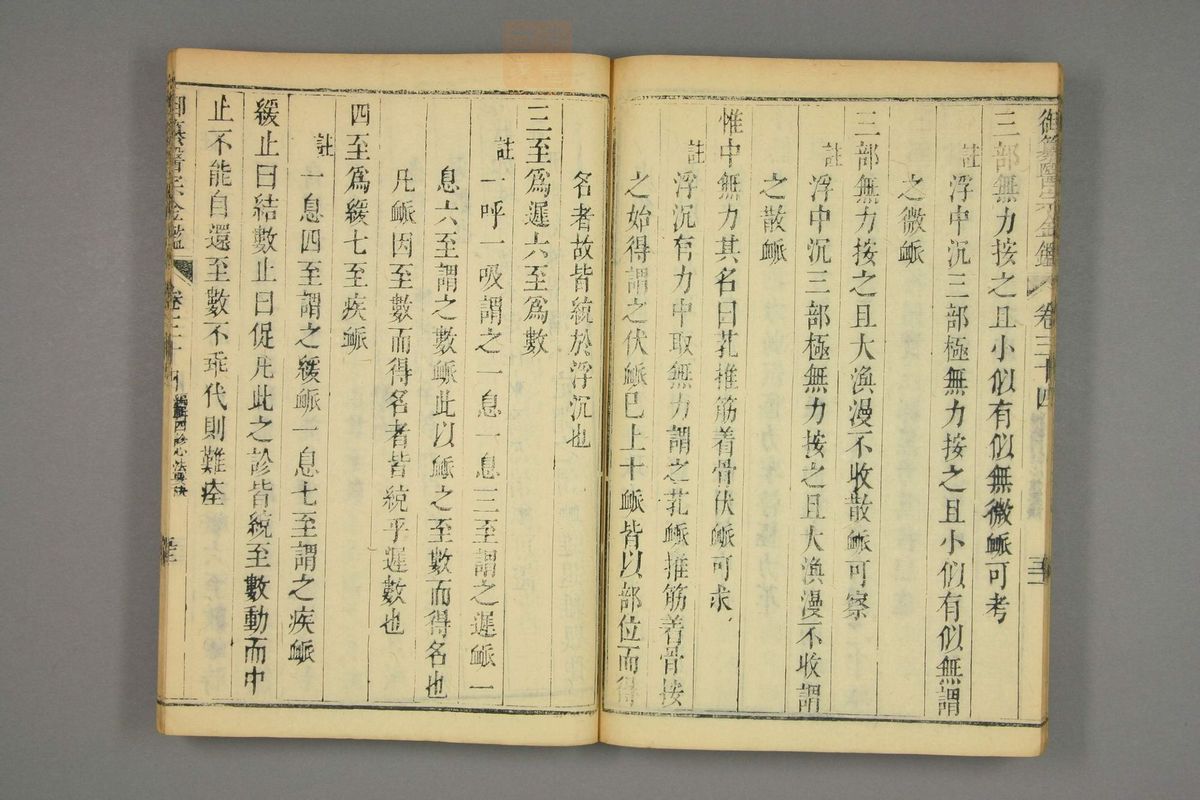 御纂醫宗金鑑 卷三十四
三部無力按之且小似有似無微脈可考
註 浮中沉三部極無力按之且小似有似無謂
之微脈
三部無力按之且大渙漫不收散脈可察
註 浮中沉三部極無力按之且大渙漫不收謂
之散脈
惟中無力其名曰芤推筋着骨伏脈可求
註 浮沉有力中取無力謂之芤脈推筋着骨按
之始得謂之伏脈已上十脈皆以部位而得
名者故皆統於浮沉也
三至爲遲六至爲數
註 一呼一吸謂之一息一息三至謂之遲脈一
息六至謂之數脈此以脈之至數而得名也
凡脈因至數而得名者皆統乎遲數也
四至爲緩七至疾脈
註 一息四至謂之緩脈一息七至謂之疾脈
緩止曰結數止曰促凡此之診皆統至數動而中
止不能自還至數不乖代則難痊
御纂醫宗金鑑 卷三十四 編輯四診心法要訣